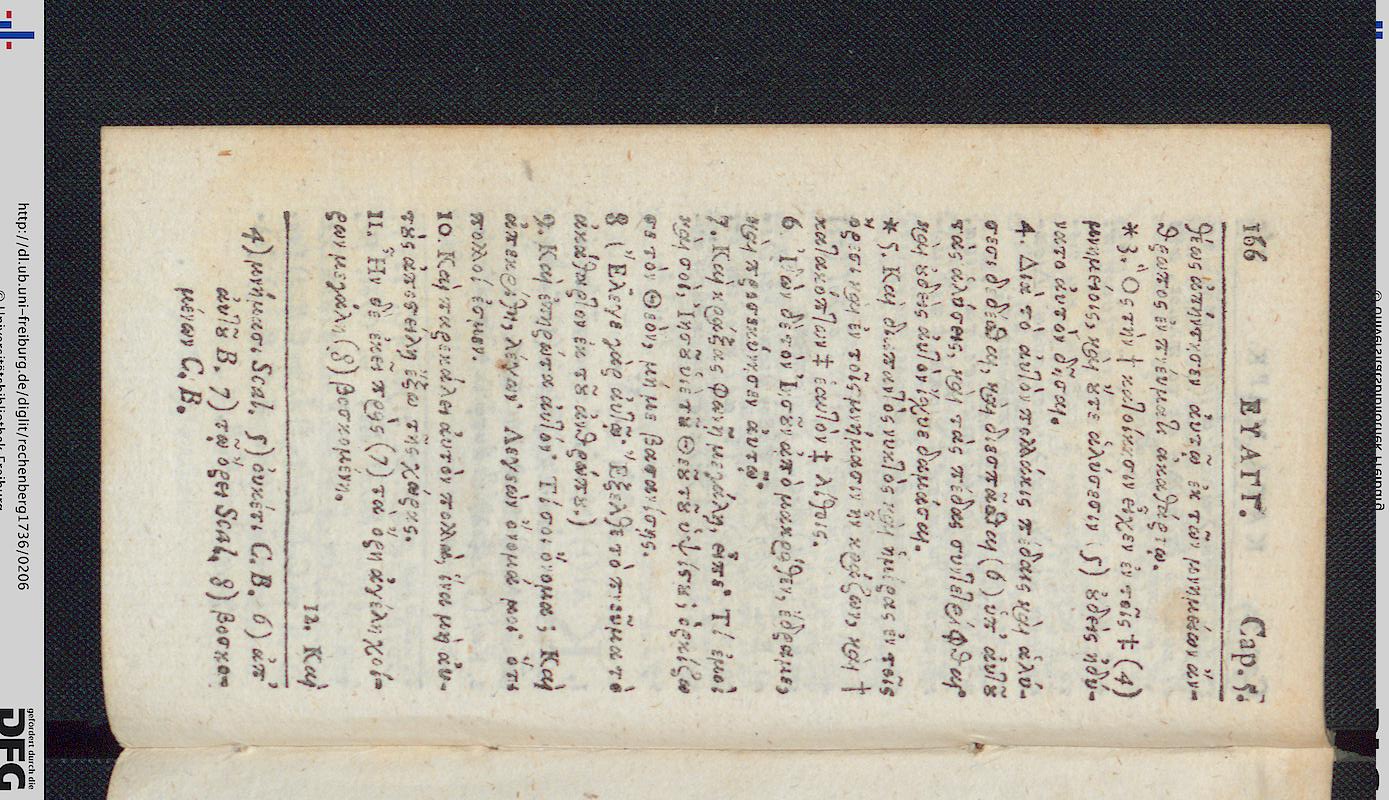 166 ΕΥΑΓΓ. Cap. 5.
θέως ἀπήντησεν αὐτῷ ἐκ τῶν μνημείων ἄν-
θρωπος ἐν πνεύματι ἀκαθάρτῳ.
* 3. Ὃς τὴν † κατοίκησιν εἶχεν ἐν τοῖς ‡ (4)
μνημείοις, καὶ οὔτε ἁλύσεσιν (5) οὐδεὶς ἠδύ-
νατο αὐτὸν δῆσαι.
4. Διὰ τὸ αὐτὸν πολλάκις πέδαις καὶ ἁλύ-
σεσι δεδέσθαι, καὶ διεσπᾶσθαι (6) ὑπ' αὐτοῦ
τὰς ἁλύσεις, καὶ τὰς πέδας συντετρίφθαι·
καὶ οὐδεὶς αὐτὸν ἴσχυε δαμάσαι.
* 5. Καὶ διαπαντὸς νυκτὸς καὶ ἡμέρας ἐν τοῖς
ὄρεσι καὶ ἐν τοῖς μνήμασιν ἦν κράζων, καὶ †
κατακόπτων ‡ ἑαυτὸν ‡ λίθοις.
6. Ἰδὼν δὲ τὸν Ἰησοῦν ἀπὸ μακρόθεν, ἔδραμε,
καὶ προσεκύνησεν αὐτῷ.
7. Καὶ κράξας φωνῇ μεγάλῃ, εἶπε· Τί ἐμοὶ
καὶ σοὶ, Ἰησοῦ υἱὲ τοῦ Θεοῦ τοῦ ὑψίστου; ὁρκίζω
σε τὸν Θεὸν, μή με βασανίσῃς.
8 (Ἔλεγε γὰρ αὐτῷ· Ἔξελθε τὸ πνεῦμα τὸ
ἀκάθαρτον ἐκ τοῦ ἀνθρώπου)
9. Καὶ ἐπηρώτα αὐτόν· Τί σοι ὄνομα; Καὶ
ἀπεκρίθη, λέγων· Λεγεὼν ὄνομά μοι· ὅτι
πολλοί ἐσμεν.
10. Καὶ παρεκάλει αὐτὸν πολλὰ, ἵνα μὴ αὐ-
τοὺς ἀποστείλῃ ἔξω τῆς χώρας.
11. Ἦν δὲ ἐκεῖ πρὸς (7) τὰ ὄρη ἀγέλη χοί-
ρων μεγάλη (8) βοσκομένη.
12. Καὶ
4) μνήμασι Scal. 5) οὐκέτι C. B. 6) ἀπ'
αὐτοῦ B. 7) τῷ ὄρει Scal. 8) βοσκο-
μένων C. B.
http://dl.ub.uni-freiburg.de/diglit/rechenberg1736/0206
© Universitätsbibliothek Freiburg
gefördert durch die
DFG